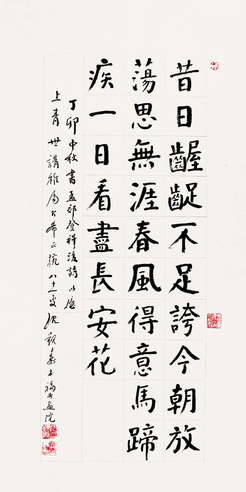 昔日齷齪不足誇今朝放
蕩思無涯春風得意馬蹄
疾一日看盡長安花
丁卯中秋書孟郊登科後詩以應
上青世講雅屬即希正腕八十一叟沈覲壽